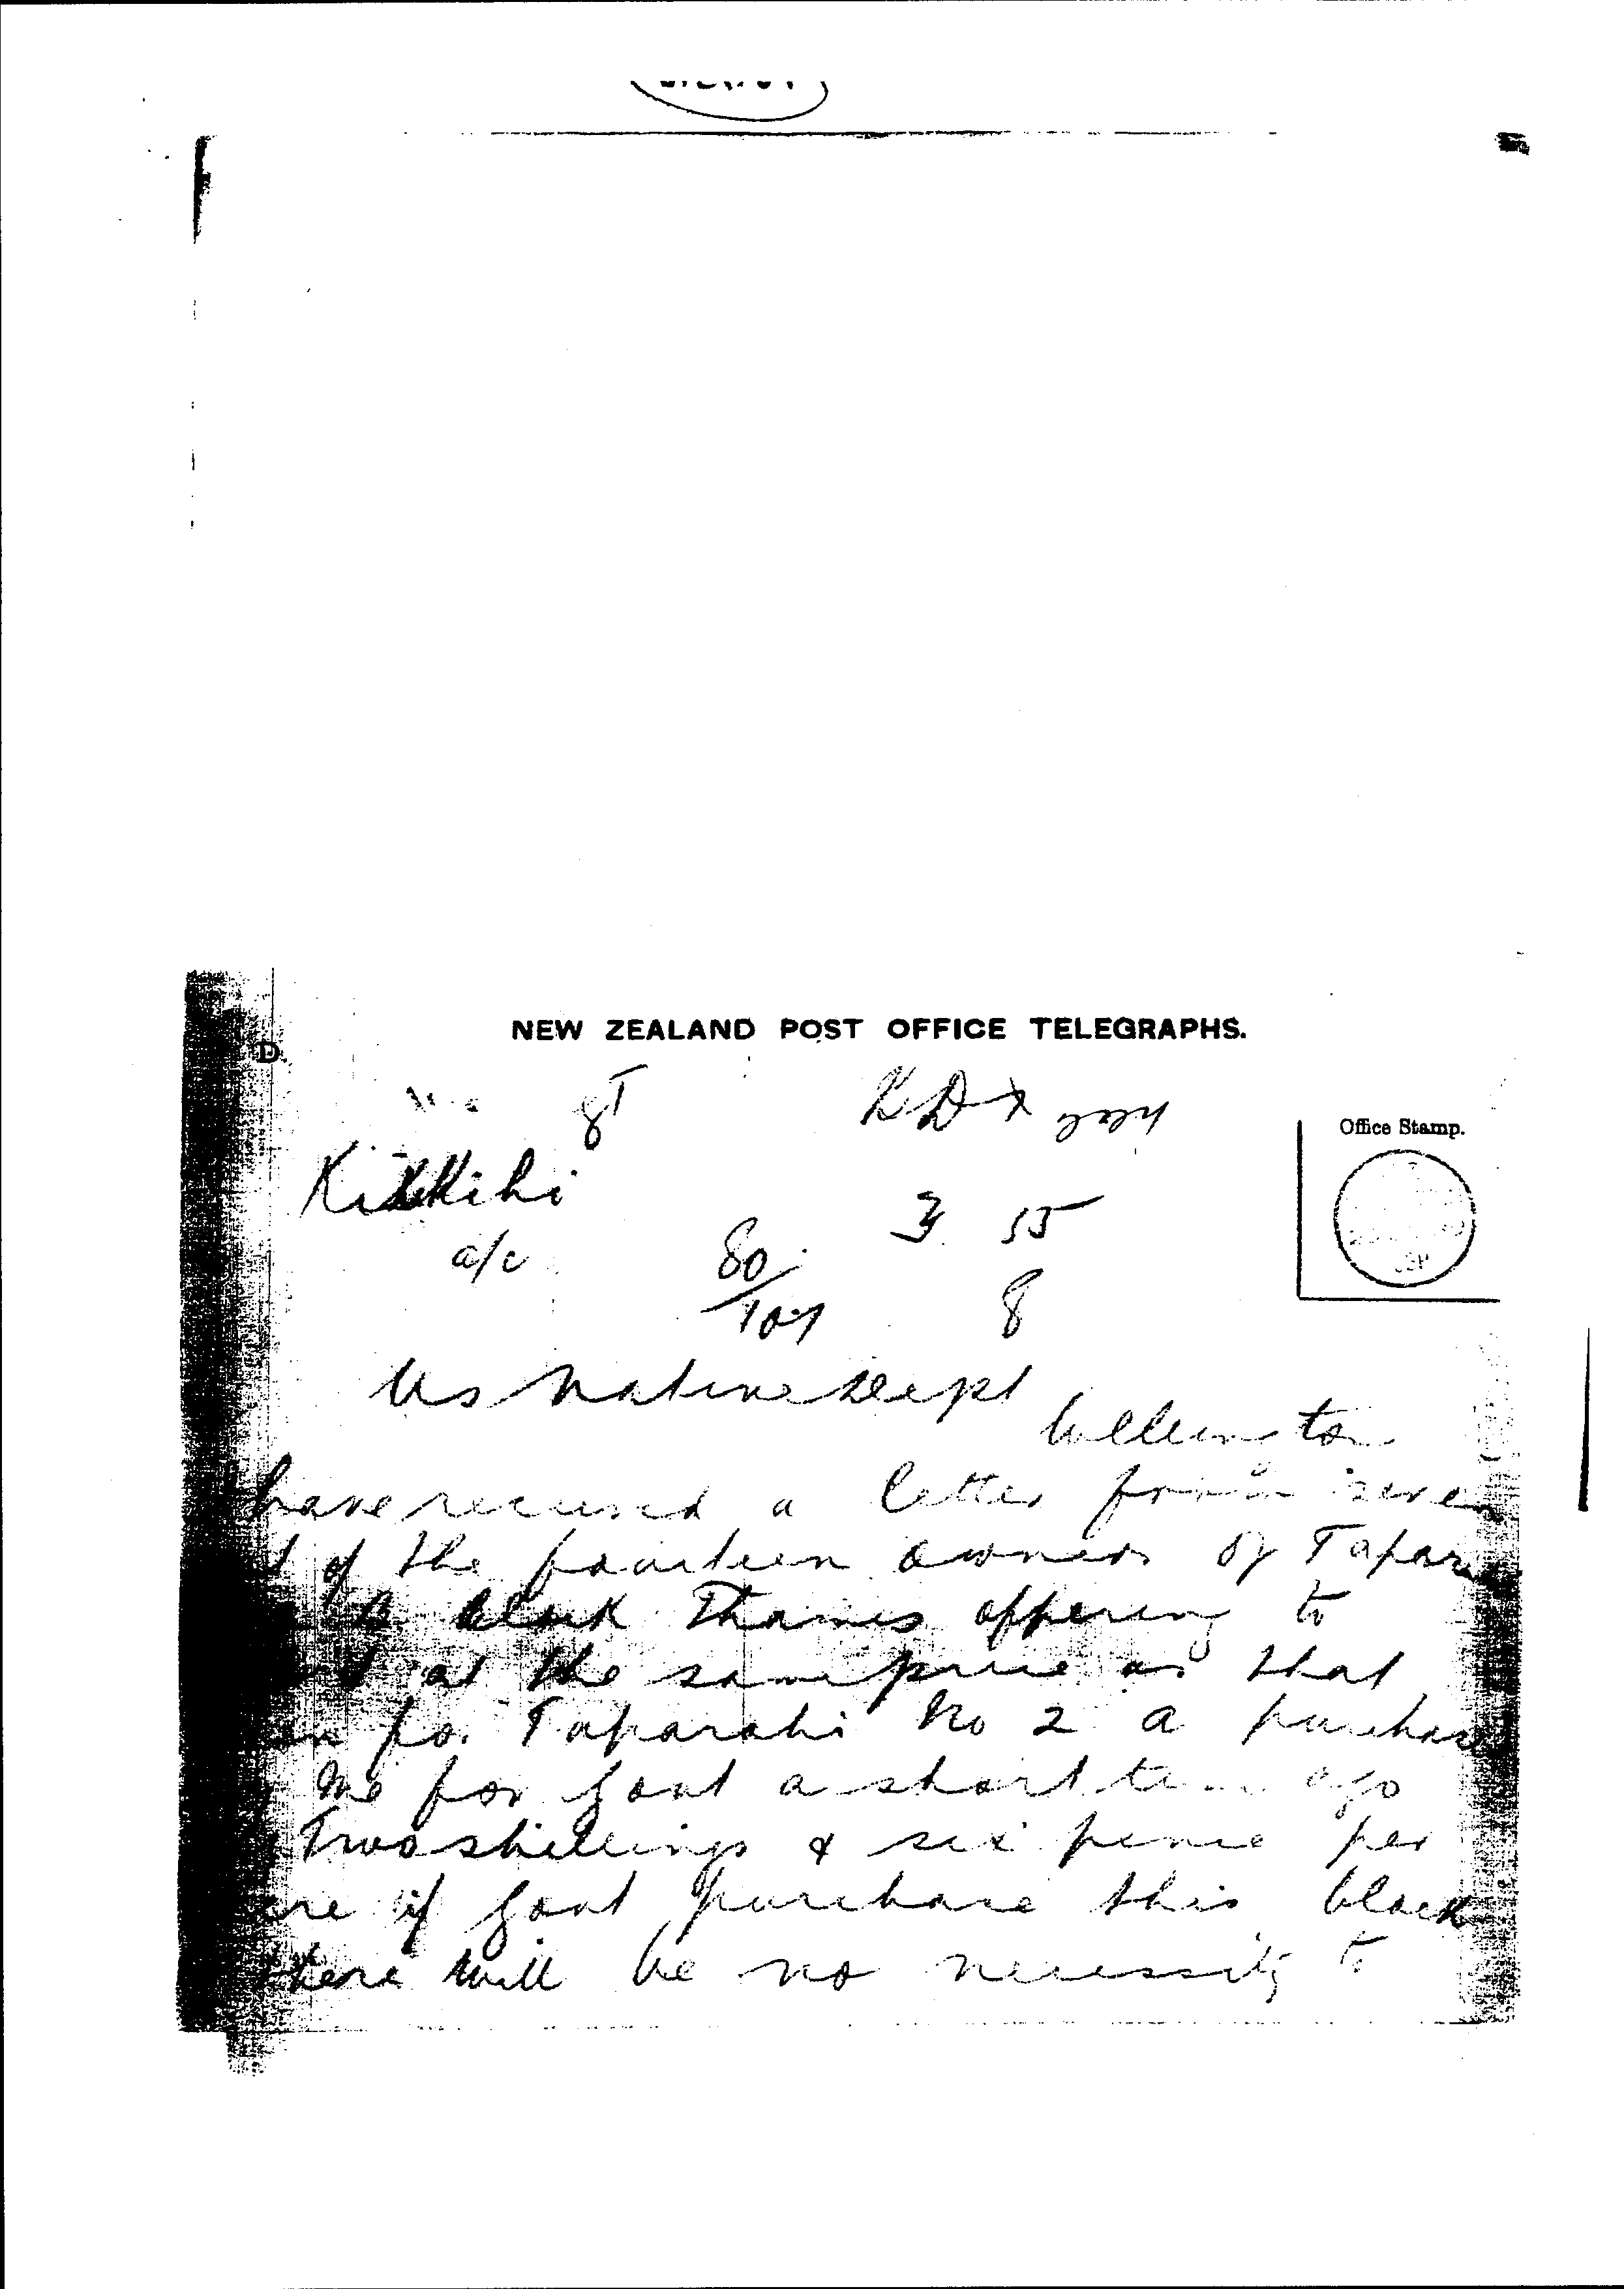 NEW ZEALAND POST OFFICE TELEGRAPHS.
D.
8T KDX
Office Stamp.
Kihikihi
3 55
a/c 80
107 8
Us Native Dept
Wellington
have received a letter from seven
of the fourteen owners of Tapar
block Thames offering to
at the same price as that
for Taparahi No 2 a purchas
me for Govt a short time ago
Two shillings & six pence per
cre if Govt purchase this block
there will be no necessity to